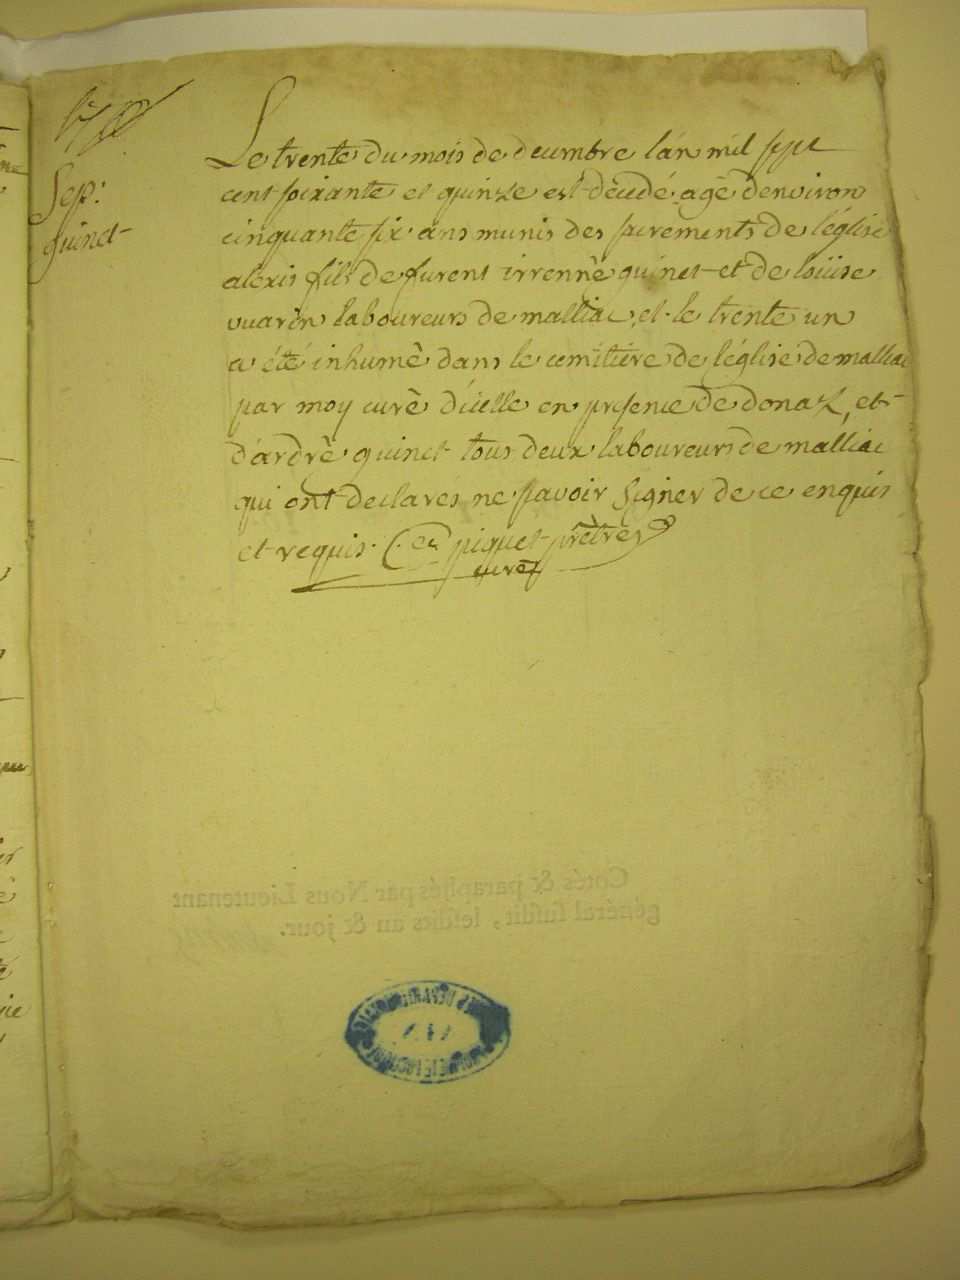 Sep:
quinet
Le trente du mois de decembre l'an mil sept
cent soixante et quinze est décedé agé d'environ
cinquante six ans munis des sacrements de l'église
alexis fils de furent irrennè quinet et de loüise
vuarin laboureurs de malliac, et le trente un
a été inhumè dans le cemitiere de l'église de malliac
par moy curè d'icelle en presence de donaz, et
d'ardrè quinet tous deux laboureurs de malliac
qui ont declarés ne savoir signer de ce enquis
et requis. piquet prêtre
curé
Cotés & paraphés par Nous Lieutenant
général susdit, lesdits an & jour.